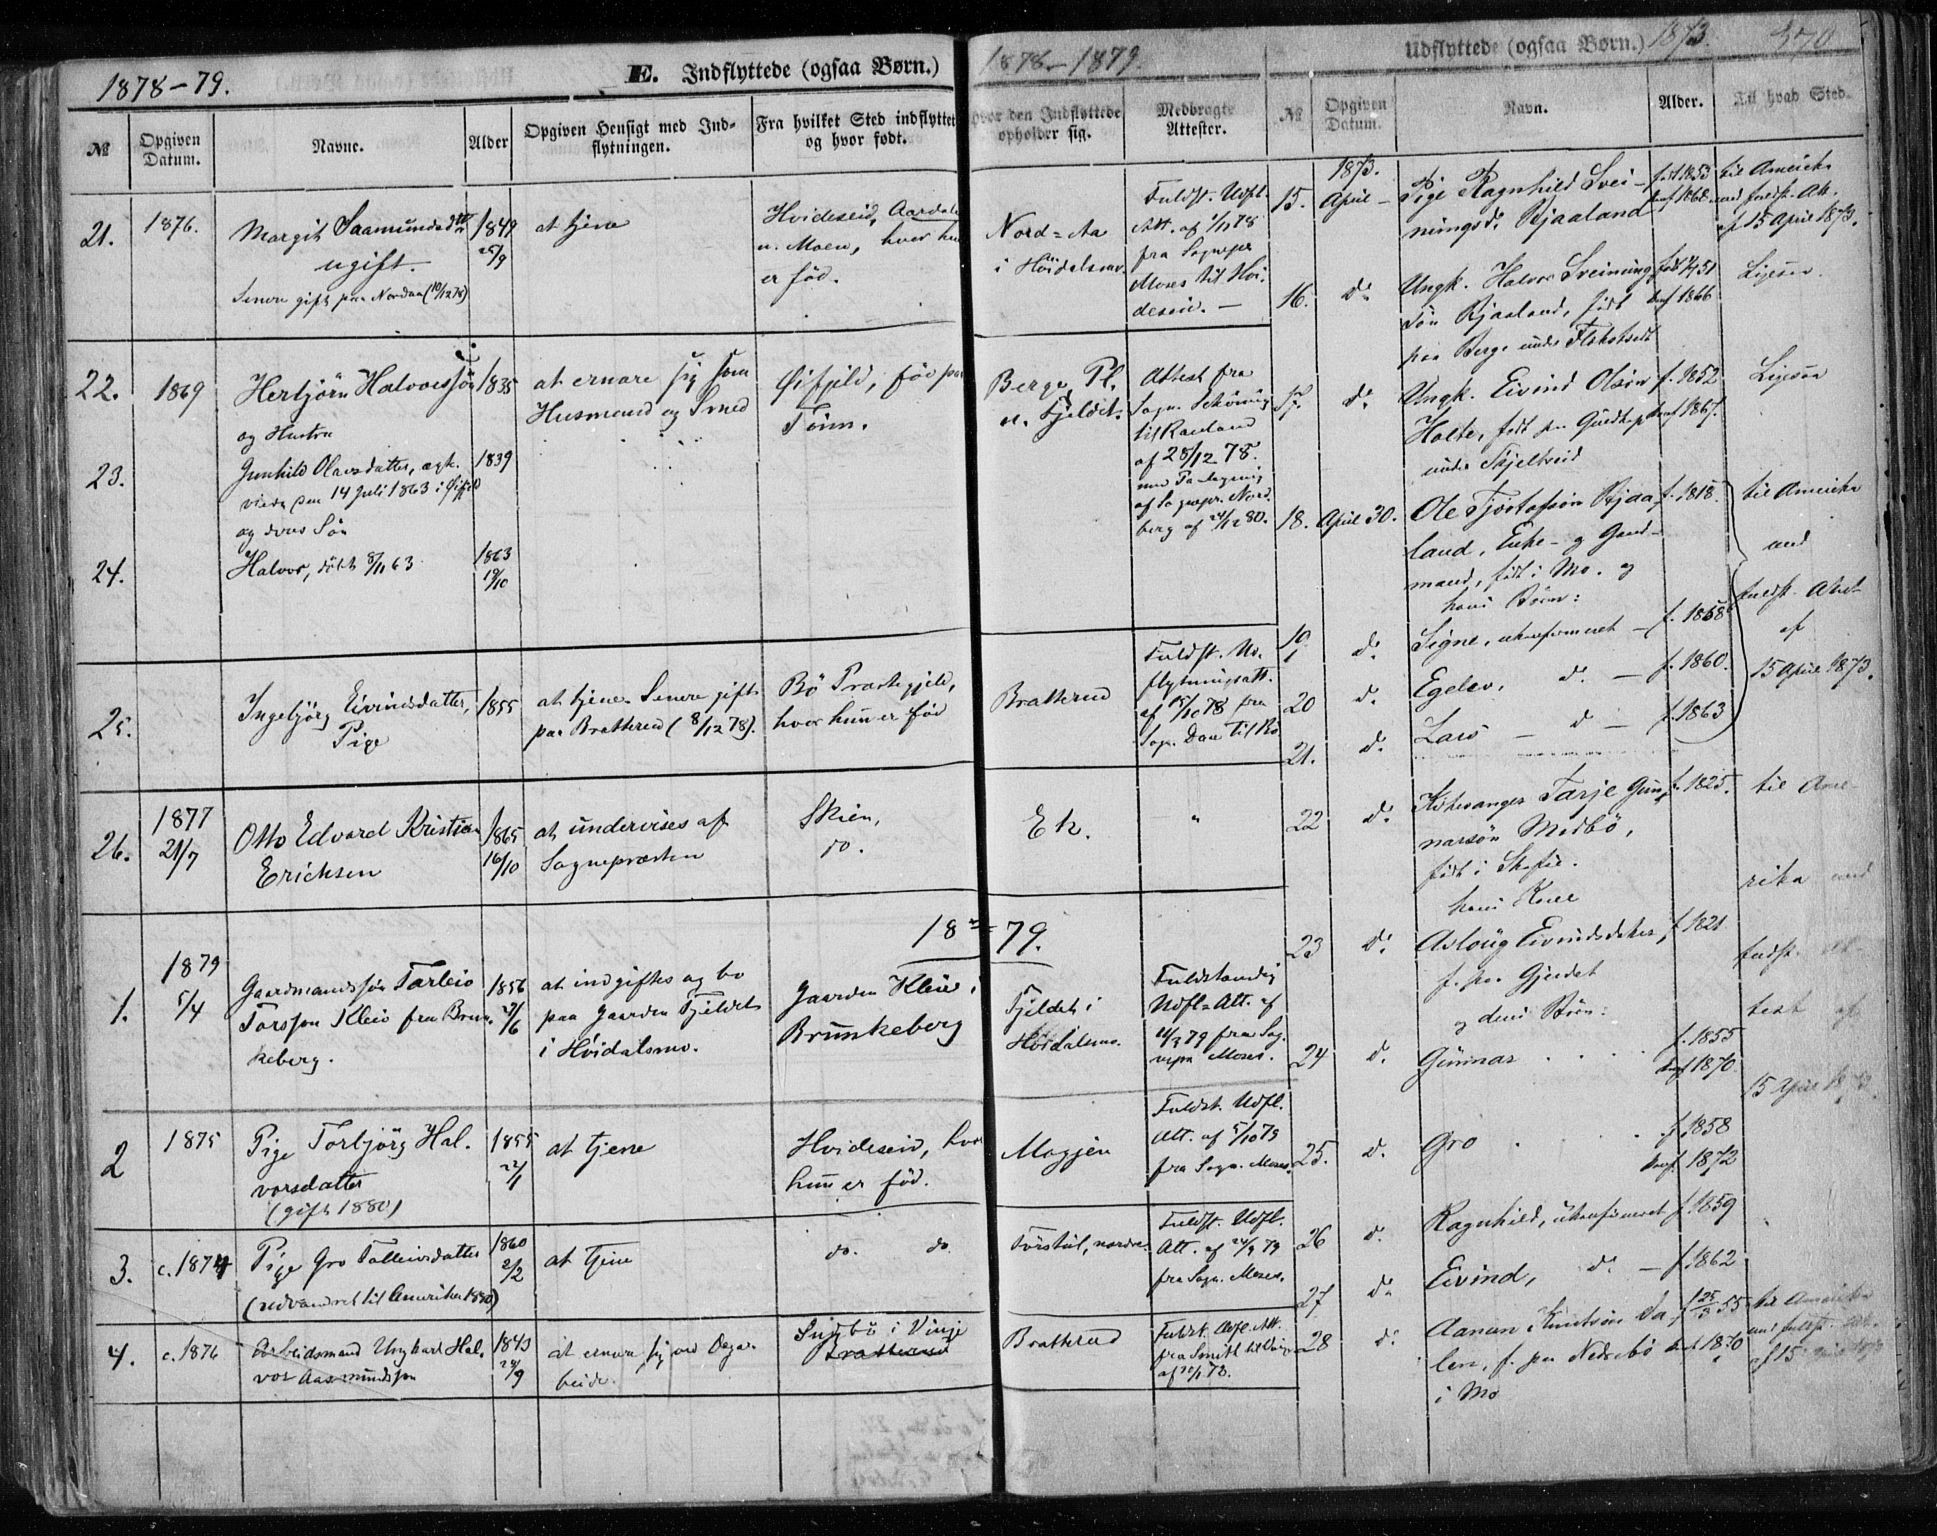 1878-79.
E. Indflyttede (ogsaa Børn.)
1878-1879.
Udflyttede (ogsaa Børn.) 1873.
370
№
Opgiven Datum.
Navne.
Alder
Opgiven Hensigt med Ind-
flytningen.
Fra hvilket Sted indflyttet
og hvor født.
hvor den Indflyttede
opholder sig.
Medbragte
Attester.
№
Opgiven
Datum.
Navn.
Alder.
Til hvad Sted.
21.
1876.
Margit Saamundsdtr
ugift.
Senere gift paa Nordaa (10/12 78)
1849
25/9
at tjene
Hvideseid, Aardalen
u. Moen, hvor hun
er fød.
Nord=Aa
i Høidalsmo.
Fuldst. Udfl.
Att. af 1/11 78
fra Sognepr
Moses til Hvi-
deseid. —
22.
1869
Herbjørn Halvorssøn
og Hustru
1835
at ernære sig som
Husmand og Smed
Øifjeld, fød paa
Tønn.
Berge Pl.
u. Fjeldet.
Attest fra
Sogn. Schöning
til Rauland
af 28/12 78.
med Paategning
af Sognepr. Nord-
berg af 24/12 80.
23.
Gunhild Olavsdatter, ægte-
viede den 14 Juli 1863 i Øifjeld
og deres Søn
1839
24.
Halvor, døbt 8/11 63
1863
19/10
25.
Ingebjørg Eivindsdatter,
Pige
1855
at tjene. Senere gift
paa Bratterud (8/12 78).
Bø Præstegjeld,
hvor hun er fød
Bratterud
Fuldst. Ud-
flytningsatt.
af 15/10 78 fra
Sogn. Daae til Bø
26.
1877
21/7
Otto Edvard Kristian
Erichsen
1865
16/10
at undervises af
Sognepræsten
Skien,
do.
Ek.
"
1879.
1.
1879
5/4
Gaardmandssøn Tarleiv
Torsson Kleiv fra Brun-
keberg.
1856
27/6
at indgiftes og bo
paa Gaarden Fjeldet
i Høidalsmo.
Gaarden Kleiv i
Brunkeberg
Fjeldet i
Høidalsmo.
Fuldstændig
Udfl=Att. af
11/3 79 fra Sog-
nepr Moses.
2
1875
Pige Torbjørg Hal-
vorsdatter
(gift 1880)
1855
22/1
at tjene
Hvideseid, hvor
hun er fød.
Mogjen
Fuldst. Udfl.
Att. af 5/10 79
fra Sogn. Moses.
3.
c. 1874
Pige Gro Tolleivsdatter
(udvandret til Amerika 1880)
1860
2/2
at tjene
do. do.
Torstul, nordre.
Fuldst. Udfl.
Att. af 24/9 79
fra Sogn. Moses.
4.
c. 1876
Arbeidsmand Ungkarl Hal-
vor Aasmundssøn
1843
24/9
at ernære sig ved Dagar-
beide.
i Vinje
Bratterud
Fuldst. Udfl. Att.
fra Smith til Vinje
15.
1873.
April —
Pige Ragnhild Svei-
nungsdr. Bjaaland
født 1853
konf 1868.
til Amerika
med fuldst. Att.
af 15 April 1873.
16.
do
Ungk. Halvor Sveinung-
søn Bjaaland, født
paa Berge under Flekstveit
konf 1866
Ligesaa.
17.
do
Ungk. Eivind Olsøn
Holte, født paa
under Skjeltveid
f. 1852
konf 1867.
Ligesaa
18.
April 30.
Ole Tjøstolfsøn Bjaa-
land, Enke- og Gaard-
mand, født i Mo. og
hans Børn:
f. 1818.
til Amerika
med
fuldst. Attest
af
15 April 1873.
19
do
Signe, ukonfirmeret —
f. 1858
20
do
Egelev, do —
f. 1860.
21.
do
Lars — do —
f. 1863
22
do
Kirkesanger Tarje Gun-
narsøn Medbø,
født i Skafse.
hans Kone
f. 1825.
til Ame-
rika med
fuldst. At-
test af
15 April 1873.
23
do
Aslaug Eivindsdatter,
f. paa Gjerdet
og deres Børn:
f. 1821
24
do
Gunnar . . . .
f. 1855
konf 1870.
25.
do
Gro . . . .
f. 1858
konf. 1872
26
do
Ragnhild, ukonfirmeret
f. 1859
27
do
Eivind, do —
f. 1862
28
do
Aanon Knudsøn Da-
len, f. paa Nedrebø
i Mo
konf 1870
til Amerika
med fuldst. Att.
af 15 April 1873